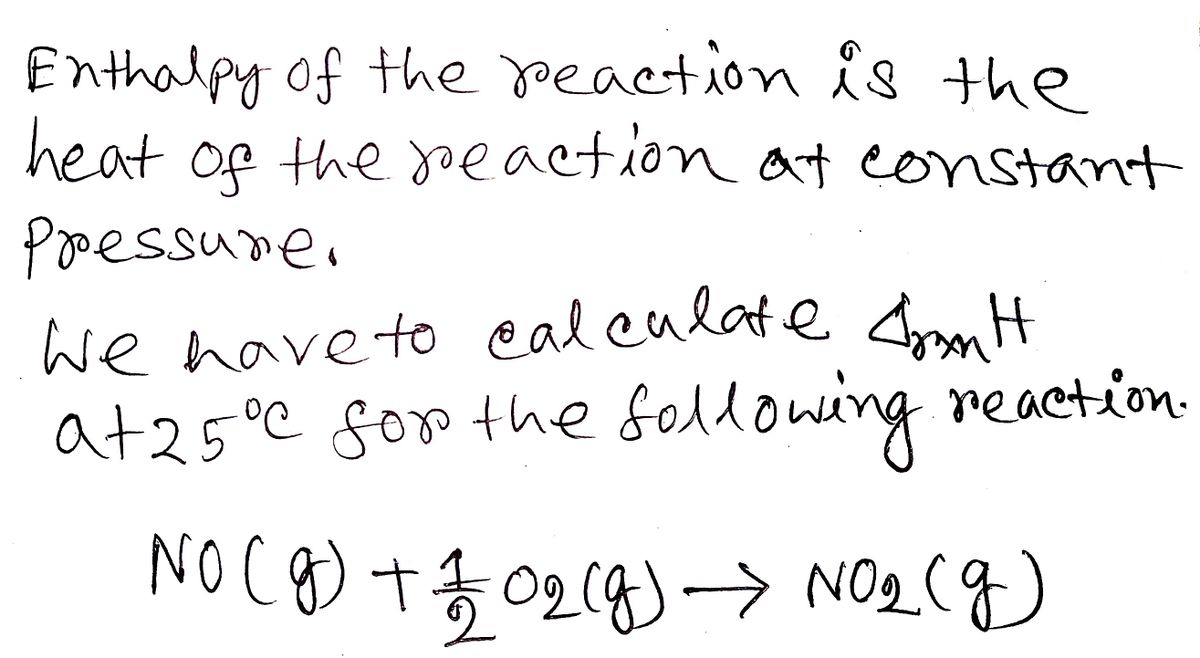 Enthalpy of the reaction is the
heat of the reaction at constant
Pressure.
We have to calculate ΔrxnH
at 25°C for the following reaction.
NO(g) + 1/2 O2(g) → NO2(g)